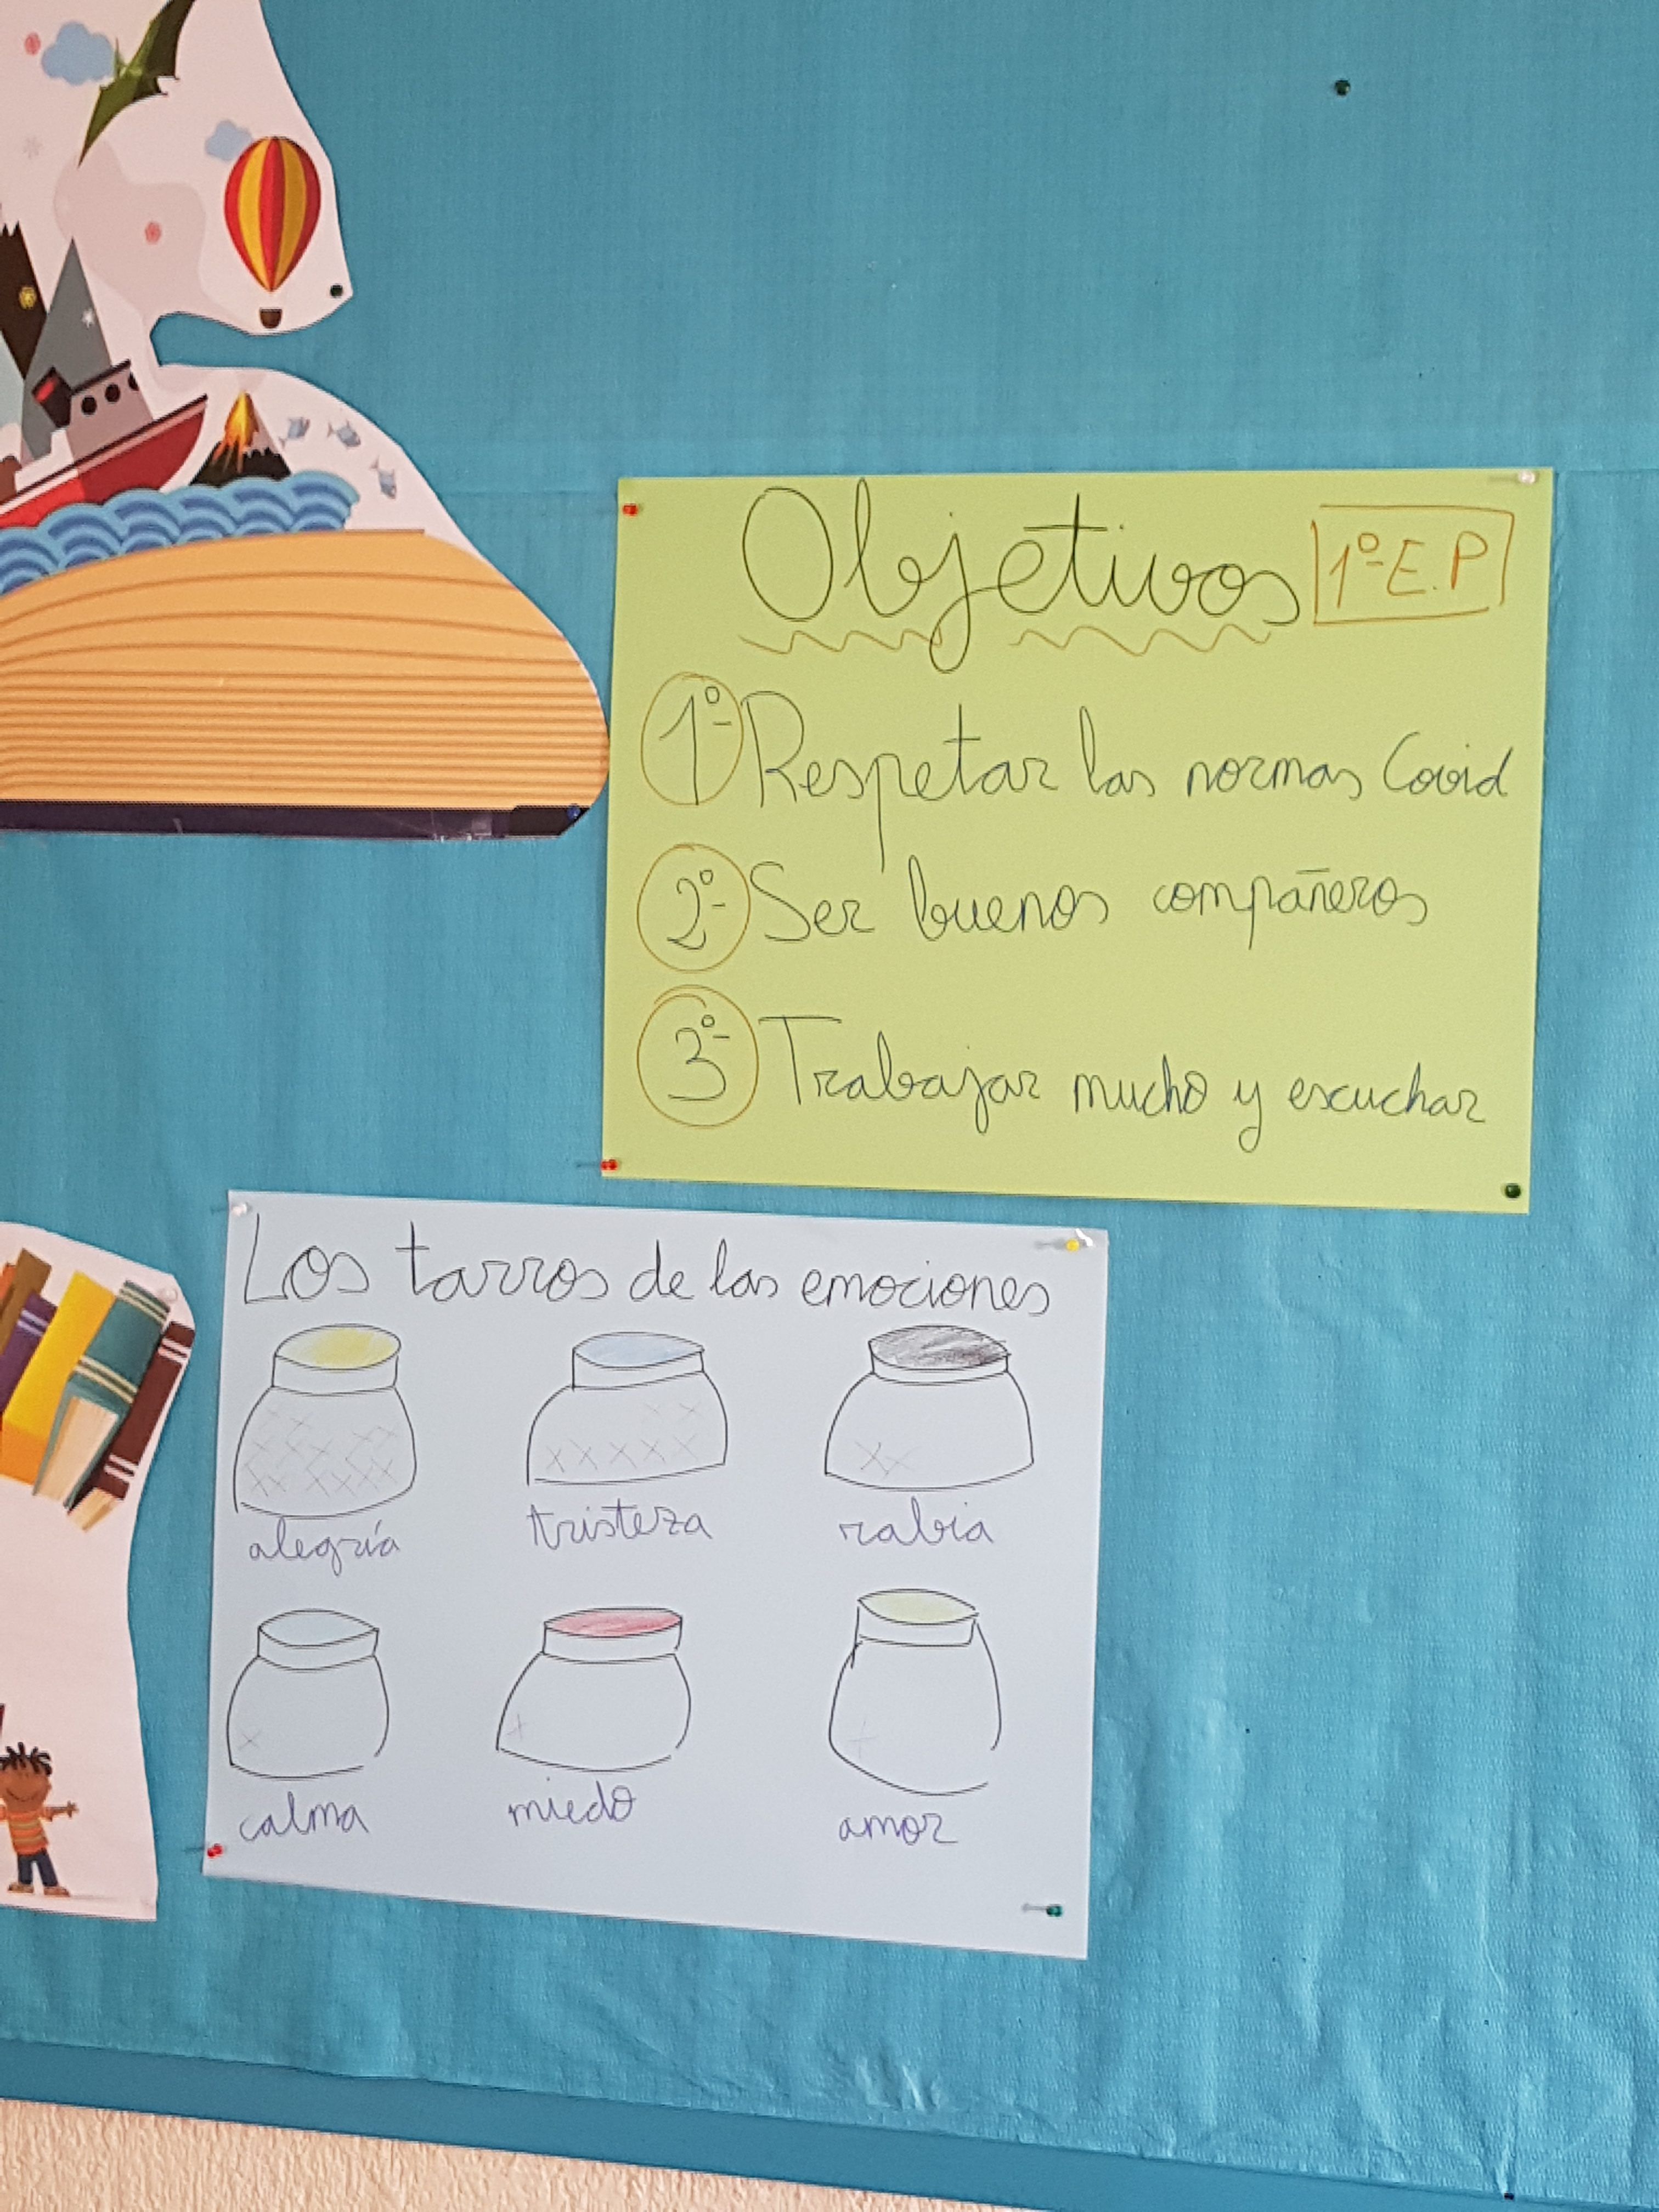 Objetivos 1º E.P
1º- Respetar las normas Covid
2º- Ser buenos compañeros
3º- Trabajar mucho y escuchar
Los tarros de las emociones
alegría tristeza rabia
calma miedo amor